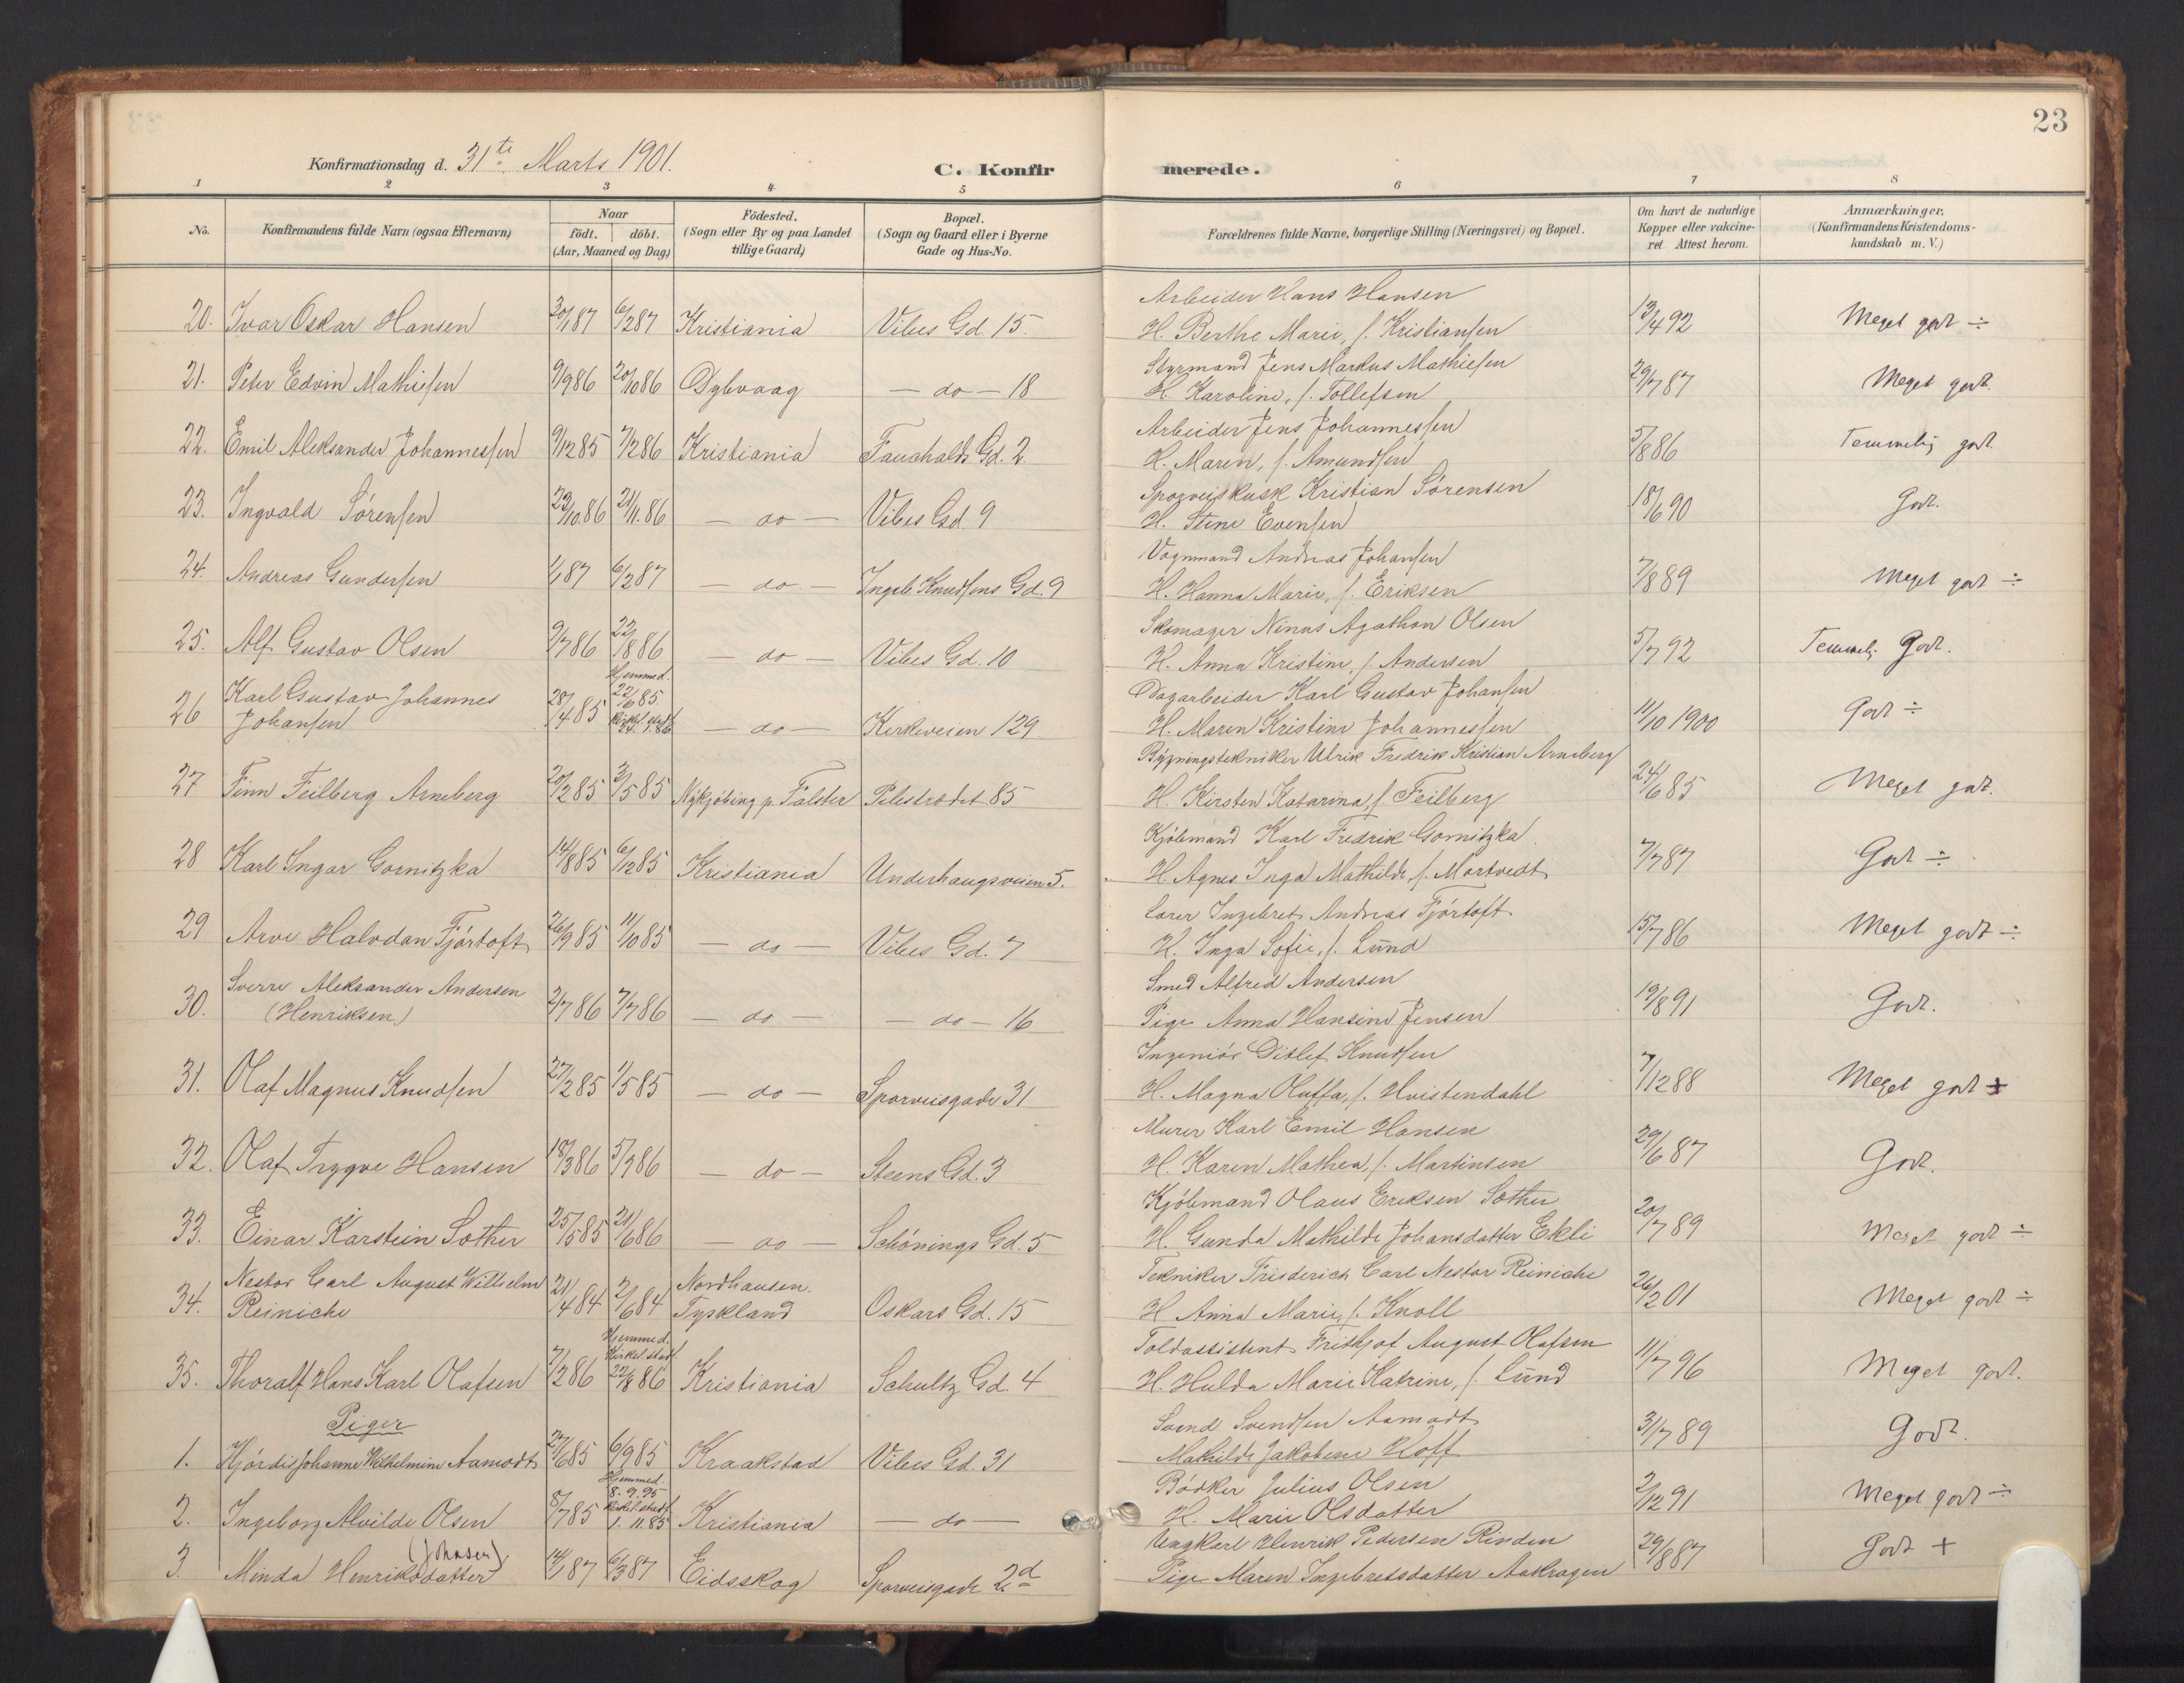 23
Konfirmationsdag d. 31te Marts 1901.
C. Konfirmerede.
1 2 3 4 5 6 7 8
No.
Konfirmandens fulde Navn (ogsaa Efternavn)
Naar
födt. döbt.
(Aar, Maaned og Dag)
Födested.
(Sogn eller By og paa Landet
tillige Gaard)
Bopæl.
(Sogn og Gaard eller i Byerne
Gade og Hus-No.
Forældrenes fulde Navne, borgerlige Stilling (Næringsvei) og Bopæl.
Om havt de naturlige
Kopper eller vakcine-
ret Attest herom.
Anmærkninger.
(Konfirmandens Kristendoms-
kundskab m. V.)
Arbeider Hans Hansen
20. Ivar Oskar Hansen 20/1 87 6/2 87 Kristiania Vibes Gd. 15. H. Berthe Marie, f. Kristiansen 13/4 92 Meget godt ÷
Styrmand Jens Markus Mathiesen
21. Peter Edvin Mathiesen 9/9 86 20/10 86 Dybvaag — do — 18 H. Karoline, f. Tollefsen 29/7 87 Meget godt.
Arbeider Jens Johannessen
22. Emil Aleksander Johannessen 9/12 85 7/2 86 Kristiania Fauchalds Gd. 2. H. Maren, f. Amundsen 5/8 86 Temmelig godt
Sporveiskusk Kristian Sørensen
23. Ingvald Sørensen 23/10 86 21/11 86 — do — Vibes Gd 9 H. Stine Evensen 18/6 90 Godt.
Vognmand Andreas Johansen
24. Andreas Gundersen 1/1 87 6/2 87 — do — Ingeb. Knudsens Gd. 9 H. Hanna Marie, f. Eriksen 7/8 89 Meget godt ÷
Skomager Ninus Agathon Olsen
25. Alf Gustav Olsen 9/7 86 22/8 86 — do — Vibes Gd. 10 H. Anna Kristine, f. Andersen 5/7 92 Temmeli Godt.
Karl Gustav Johannes Hjemmed. Dagarbeider Karl Gustav Johansen
26 Johansen 28/4 85 22/6 85. Kirkel. stadf. 24.1.86 — do — Kirkeveien 129 H. Maren Kristine Johannessen 11/10 1900 Godt ÷
Bygningstekniker Ulrik Fredrik Kristian Arneberg
27 Finn Feilberg Arneberg 20/2 85 3/5 85 Nykjøbing p. Falster Pilestrædet 85 H. Kirsten Katarina, f. Feilberg 24/6 85 Meget godt.
Kjøbmand Karl Fredrik Gornitzka
28 Karl Ingar Gornitzka 14/8 85 6/12 85 Kristiania Underhaugsveien 5. H. Agnes Inga Mathilde, f. Mortvedt 7/7 87 Godt ÷
Lærer Ingebret Andreas Fjørtoft
29 Arve Halvdan Fjørtoft 26/9 85 11/10 85 — do — Vibes Gd. 7 H. Inga Sofie, f. Lund 15/7 86 Meget godt ÷
Sverre Aleksander Andersen Smed Alfred Andersen
30. (Henriksen) 2/7 86 7/7 86 — do — — do — 16 Pige Anna Hansine Jensen 19/8 91 Godt.
Ingeniør Ditlef Knudsen
31. Olaf Magnus Knudsen 27/2 85 1/5 85 — do — Sporveisgade 31 H. Magna Oluffa, f. Hvistendahl 7/12 88 Meget godt ÷
Murer Karl Emil Hansen
32. Olaf Trygve Hansen 18/3 86 5/7 86 — do — Steens Gd. 3 H. Karen Mathea, f. Martinsen 29/6 87 Godt.
Kjøbmand Olaus Eriksen Sæther
33. Einar Karstein Sæther 25/5 85 21/6 86 — do — Schönings Gd. 5 H. Gunda Mathilde Johansdatter Ekli 20/7 89 Meget godt ÷
Nestor Carl August Wilhelm Nordhausen. Tekniker Friederich Carl Nestor Reiniche
34. Reiniche 21/4 84 2/6 84 Tyskland Oskars Gd. 15 H. Anna Marie, f. Knoll 26/2 01 Meget godt ÷
Hjemmed. Kirkel. stadf. Toldassistent Frithjof August Olafsen
35. Thoralf Hans Karl Olafsen 7/2 86 22/8 86 Kristiania Schultz Gd. 4 H. Hulda Marie Katrine, f. Lund 11/7 96 Meget godt.
Piger
Svend Svendsen Aamodt
1. Hjördis Johanne Wilhelmine Aamodt 27/6 85 6/9 85 Kraakstad Vibes Gd. 31 Mathilde Jakobine Hoff 31/7 89 Godt.
Hjemmed. 8.9.95 Bødker Julius Olsen
2. Ingeborg Alvilde Olsen 8/7 85 Kirkel. stadf. 1.11.85 Kristiania — do — H. Marie Olsdatter 2/12 91 Meget godt ÷
(Johnsen) Ungkarl Henrik Pedersen Rinden
3. Minda Henriksdatter 14/1 87 6/3 87 Eidsskog Sporveisgade 2d Pige Maren Ingebretsdatter Aakragen 29/8 87 Godt +